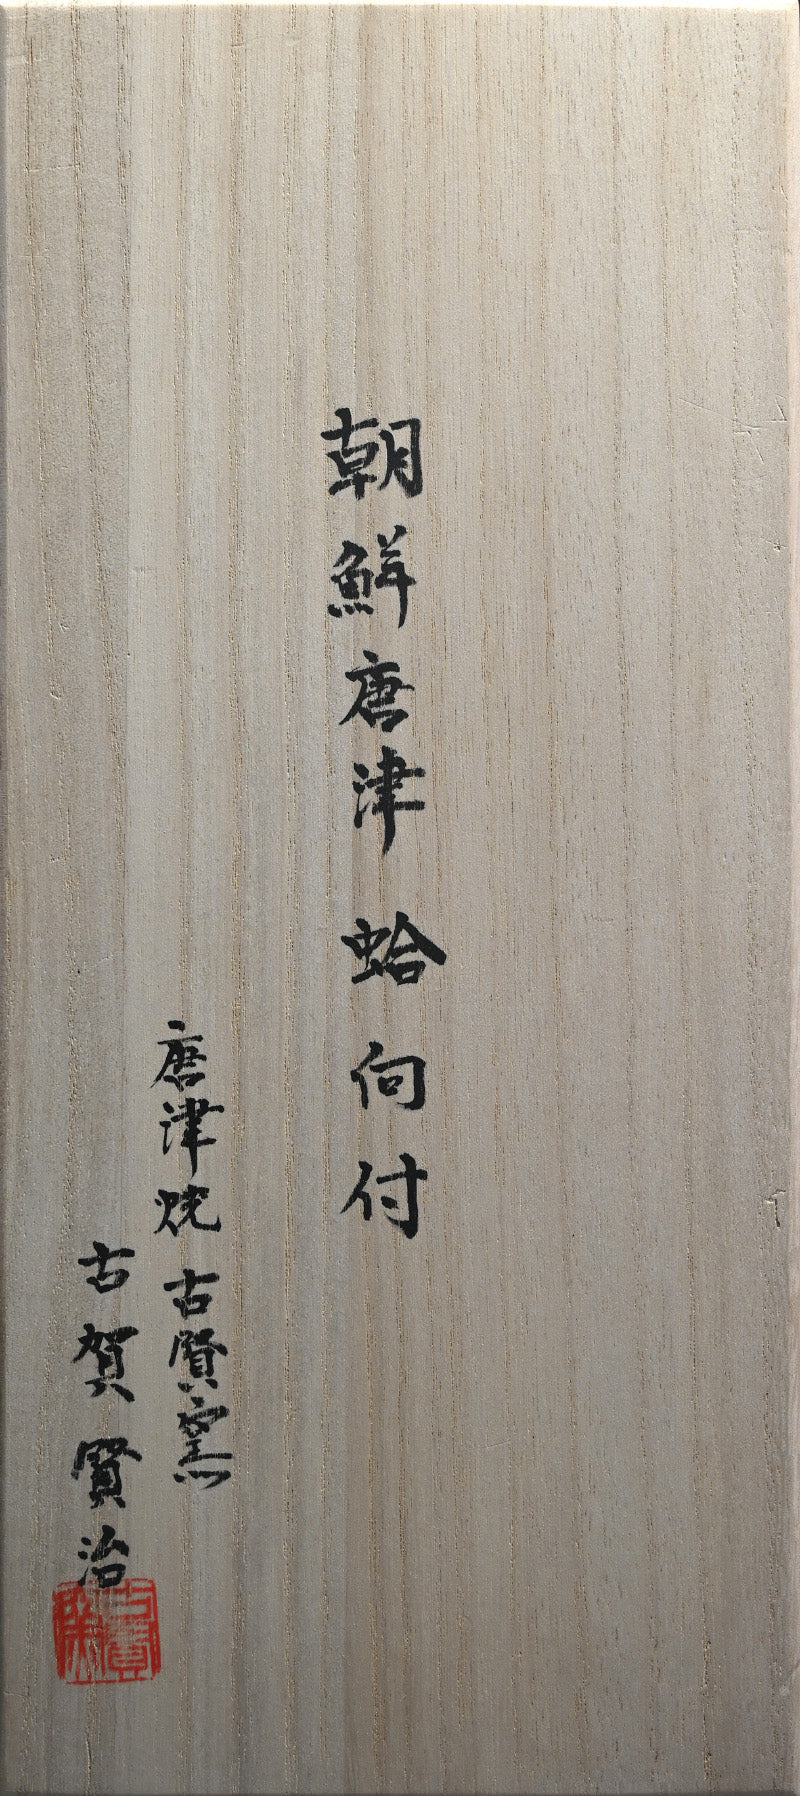 朝鮮唐津 蛤向付
唐津焼 古賢窯
古賀賢治